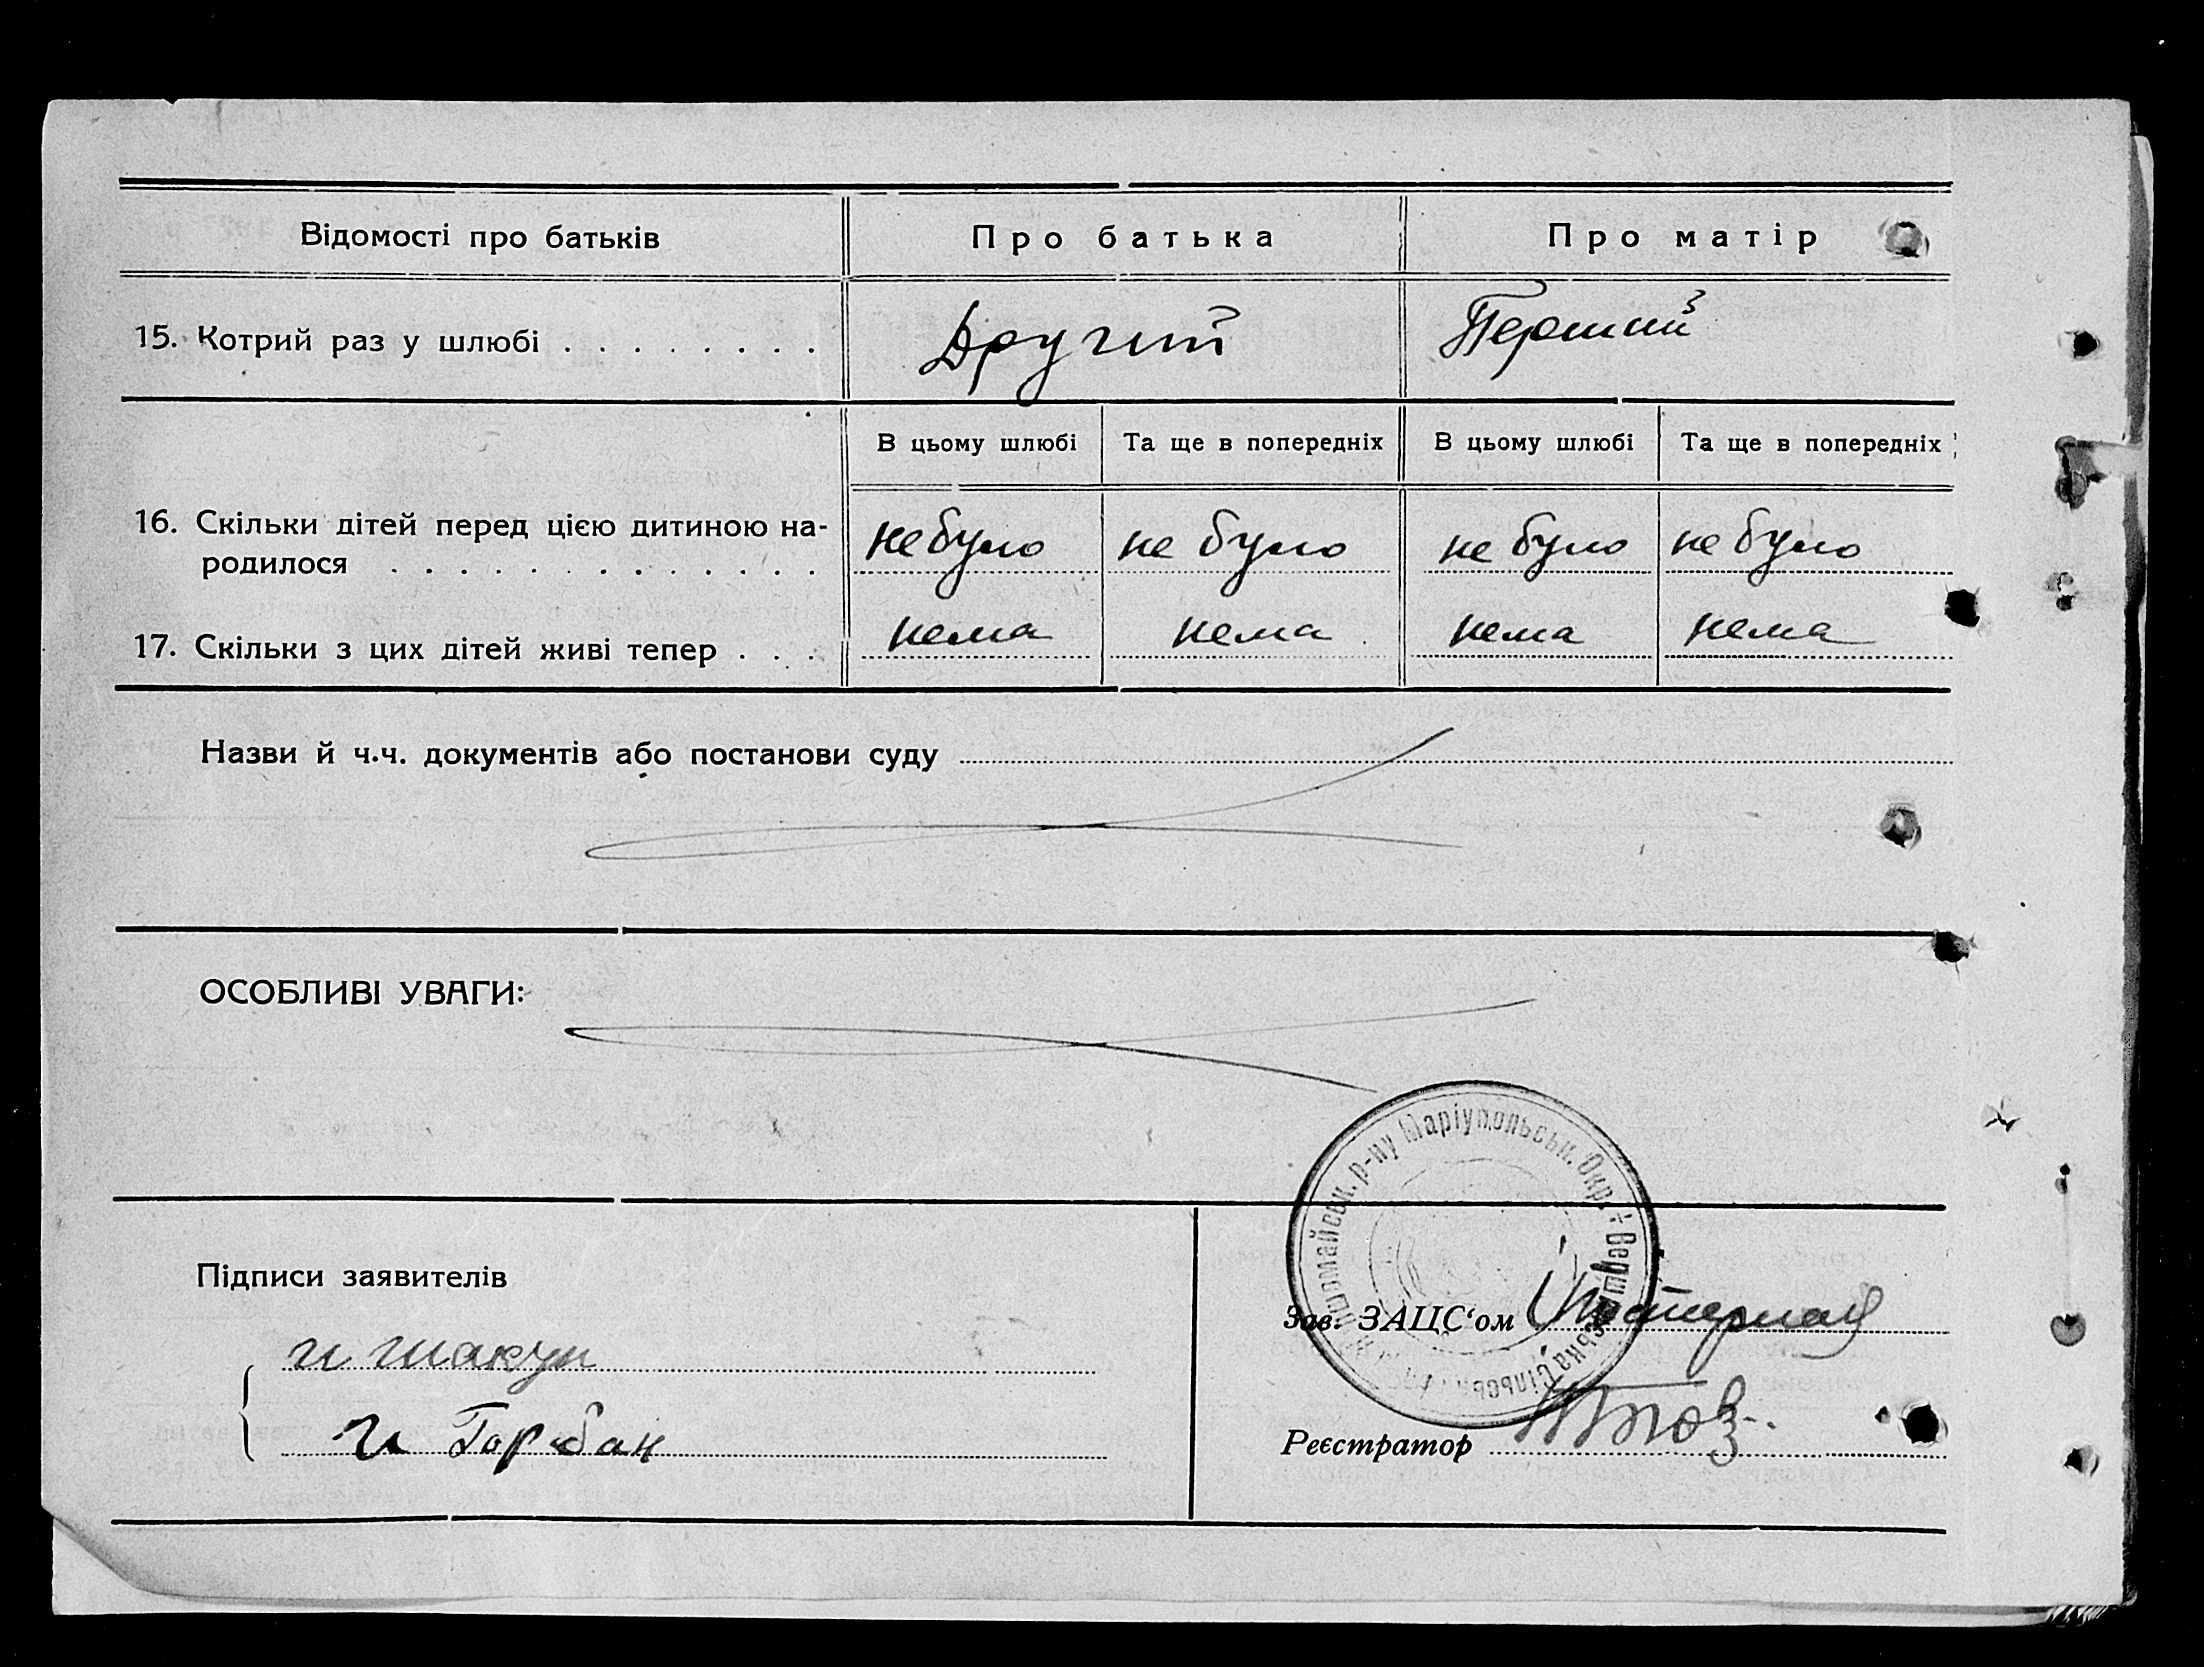 Відомості про батьків
Про батька
Про матір
15. Котрий раз у шлюбі . . . . . . . .
Другий
Перший
В цьому шлюбі
Та ще в попередніх
В цьому шлюбі
Та ще в попередніх
16. Скільки дітей перед цією дитиною на-
родилося . . . . . . . . . . . . .
не було
не було
не було
не було
17. Скільки з цих дітей живі тепер . . .
нема
нема
нема
нема
Назви й ч.ч. документів або постанови суду
ОСОБЛИВІ УВАГИ:
р-ну Маріупольськ. Окр.
Підписи заявителів
и шакун
и Горбан
Зав. ЗАЦС‘ом
Реєстратор